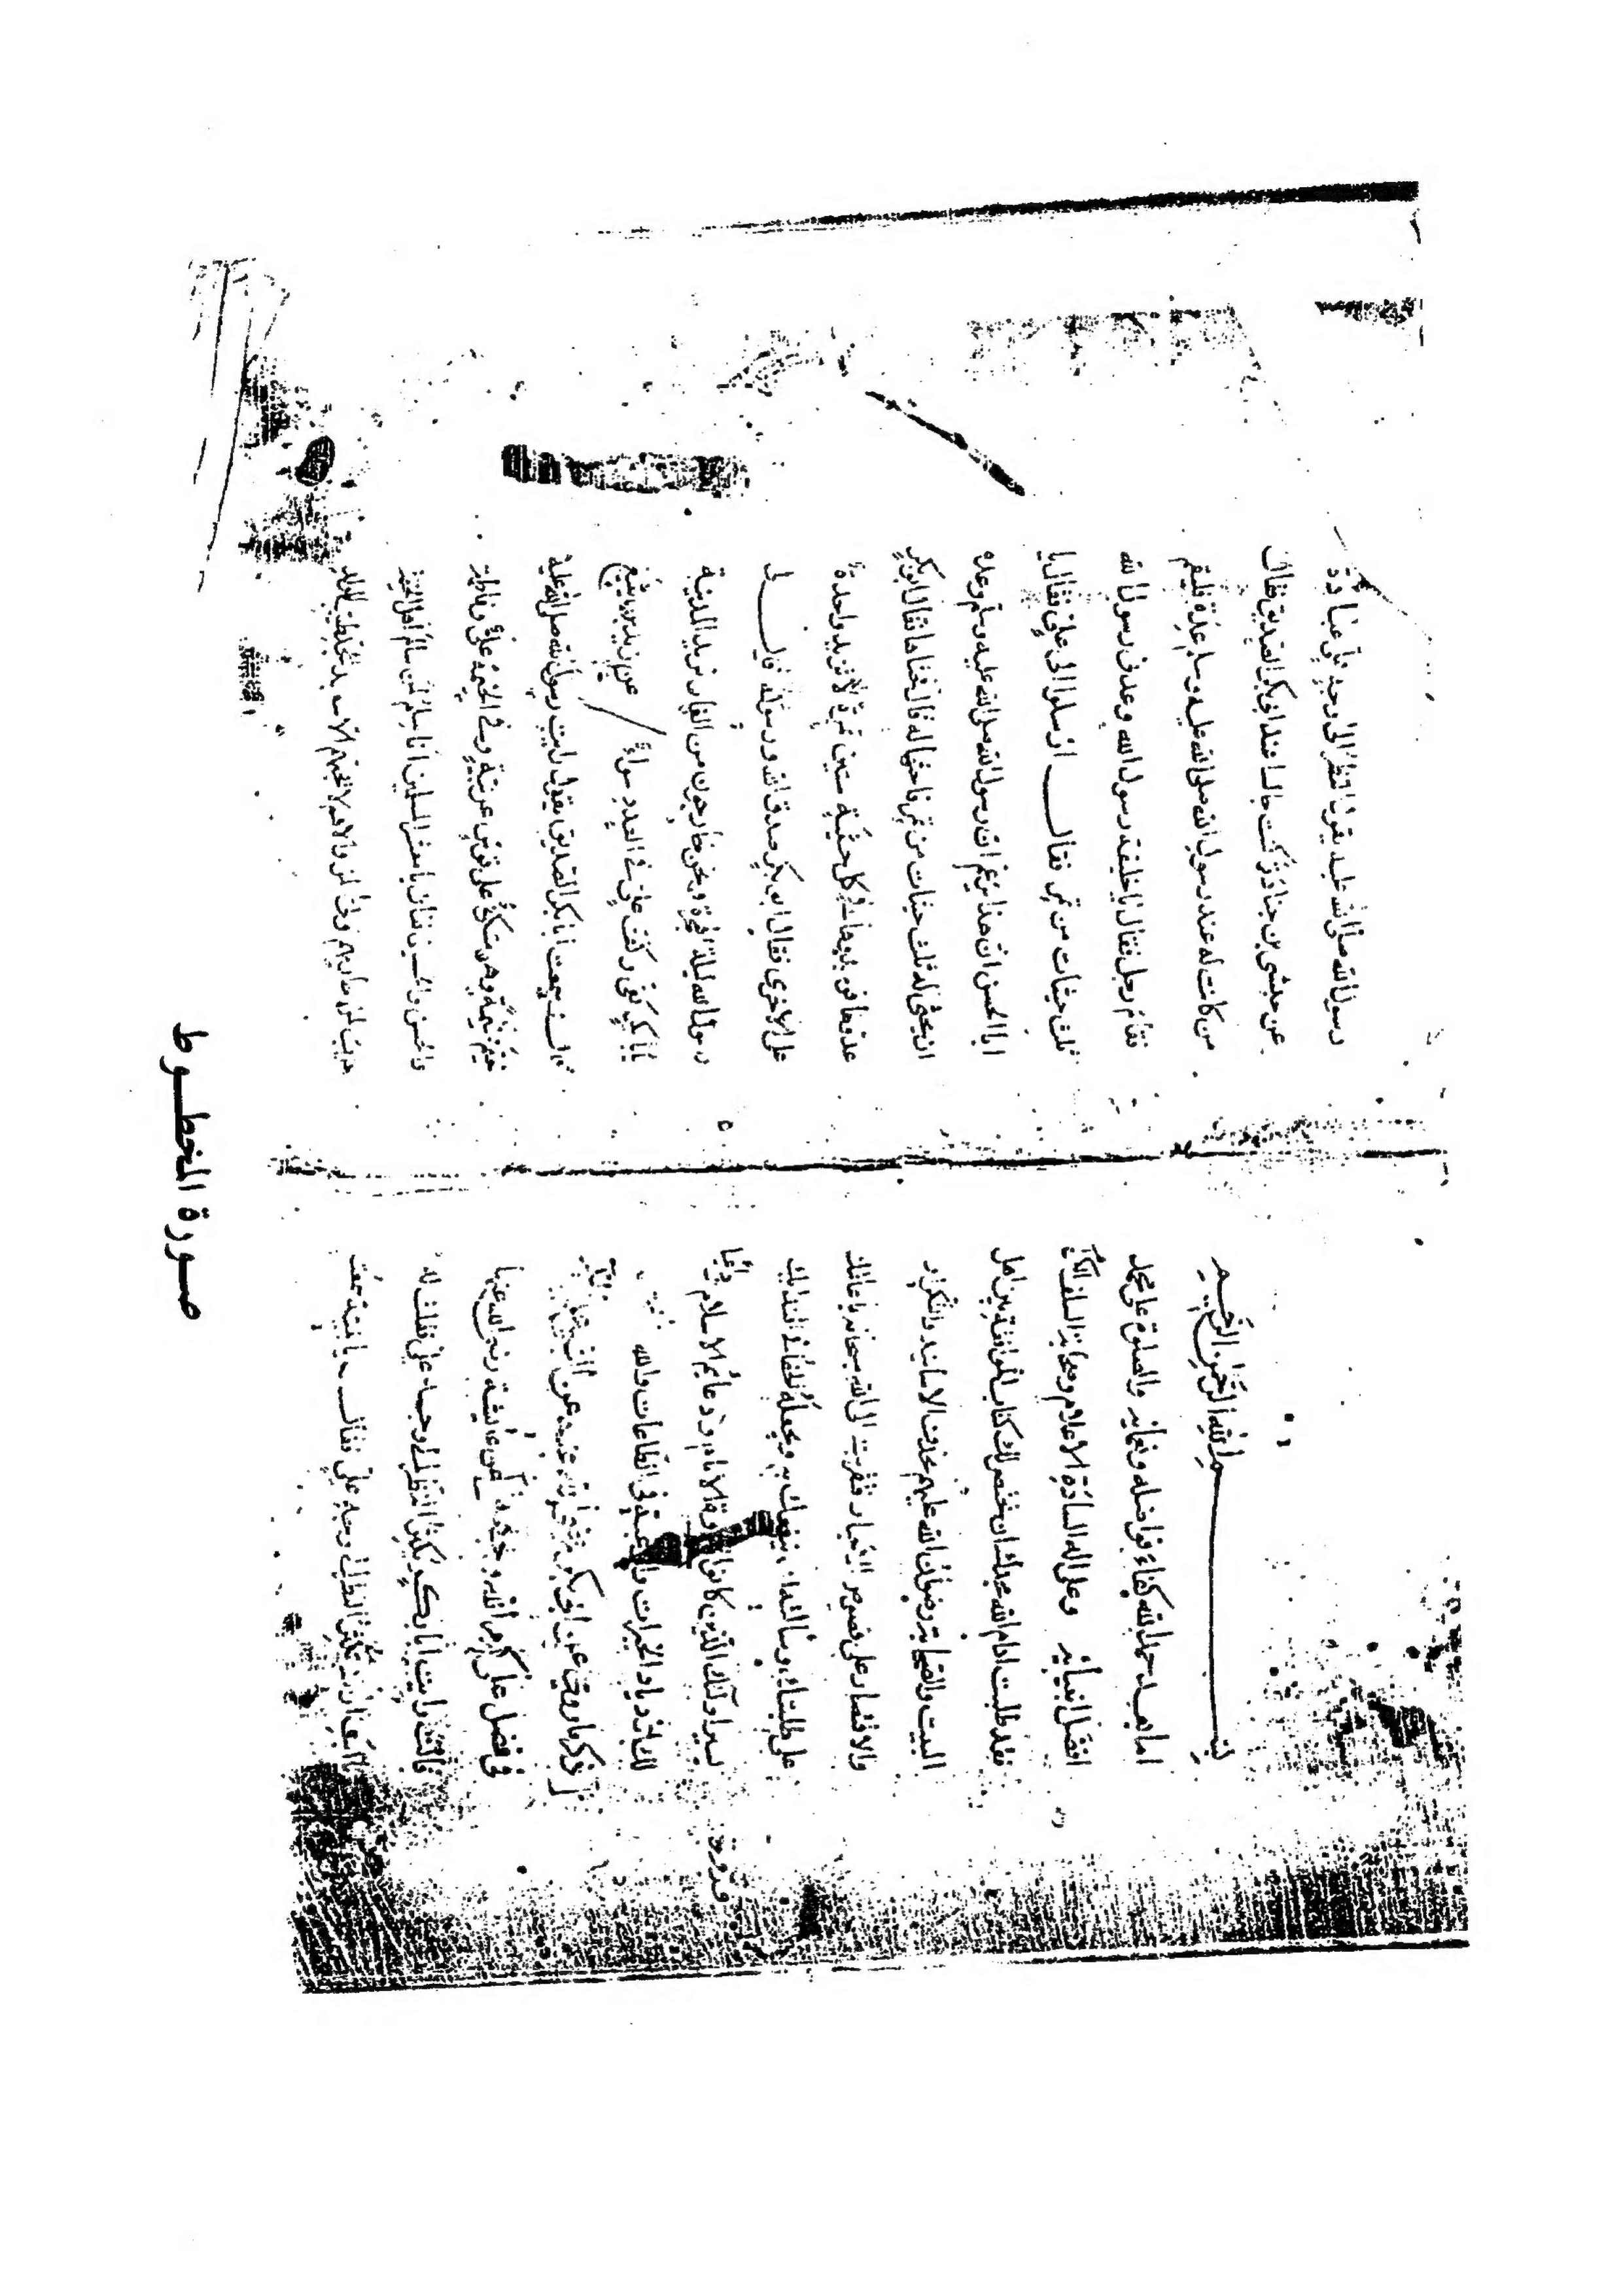 صورة المخطوط
بسم الله الرحمن الرحيم
اما بعد حمد الله كفاء فواضله ونعمائه والصلوة على محمد
افضل انبيائه وعلى اله السادة الاعلام وصحابته السلف الكرام
فقد طلبت ادام الله مجدك ان نختصر لك كتاب الموافقة بين اهل
البيت والصحابة رضوان الله عليهم بحذف الاسانيد والتكرار
والاقتصار على فصوص الاخبار فتقربت الى الله سبحانه باعانتك
على طلبتك وسالته ان ينفعك به ويجعله
لسير اولئك الذين كانوا الانام ودعائم الاسلام
الازدياد الخيرات في الطاعات والله
ذكر ما روي عن ابي بكر
في فضل علي كرم الله وجهه عن عائشة رضي الله عنها
قالت رايت ابا بكر يكثر النظر الى وجه علي فقلت له
تكثر النظر الى وجه علي فقال يا بنية سمعت
رسول الله صلى الله عليه يقول النظر الى وجه علي عبادة
عن حبشي بن جنادة كنت جالسا عند ابي بكر الصديق فقال
من كانت له عند رسول الله صلى الله عليه وسلم عدة فليقم
فقام رجل فقال يا خليفة رسول الله وعدني رسول الله
ثلث حثيات من تمر فقال ارسلوا الى علي فقال يا
ابا الحسن ان هذا يزعم ان رسول الله صلى الله عليه وسلم وعده
ان يحثي له ثلث حثيات من تمر فاحثها له قال فحثاها فقال ابو بكر
عدوها فوجدوها في كل حثية ستين تمرة لا تزيد واحدة
على الاخرى فقال ابو بكر صدق الله ورسوله قال لي
رسول الله ليلة الهجرة ونحن خارجون من الغار نريد المدينة
يا ابا بكر كفي وكف علي في العدد سواء عن زيد بن يثيع
قال سمعت ابا بكر الصديق يقول رايت رسول الله صلى الله عليه
خيم خيمة وهو متكئ على قوس عربية وفي الخيمة علي وفاطمة
والحسن والحسين فقال يا معشر المسلمين انا سلم لمن سالم اهل الخيمة
حرب لمن حاربهم ولي لمن والاهم لا يحبهم الا سعيد الجد طيب المولد